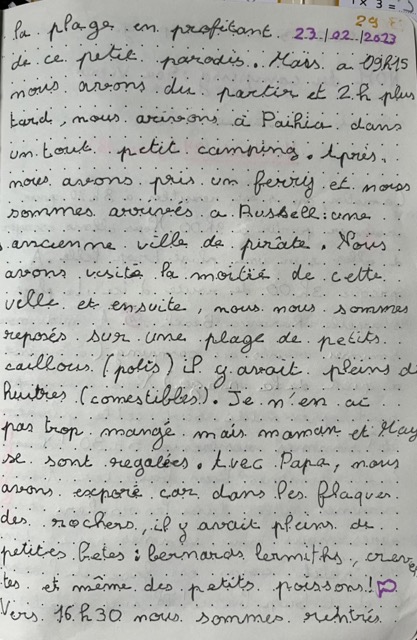 1 x 3 =
29 F
la plage en profitant 23/02/2023
de ce petit paradis. Mais a 09H15
nous avons du partir et 2h plus
tard, nous arivons à Paihia dans
un tout petit camping. Après,
nous avons pris un ferry et nous
sommes arrivés a Russell: une
ancienne ville de pirate. Nous
avons visité la moitié de cette
ville et ensuite, nous nous sommes
reposés sur une plage de petits
caillous (polis) il y avait pleins d
huitres (comestibles). Je n'en ai
pas trop mangé mais maman et May
se sont regalées. Avec Papa, nous
avons exporé car dans les flaques
des rochers, il y avait pleins de
petites betes: bernards lermiths, creve
tes et même des petits poissons!
Vers 16h30 nous sommes rentrés